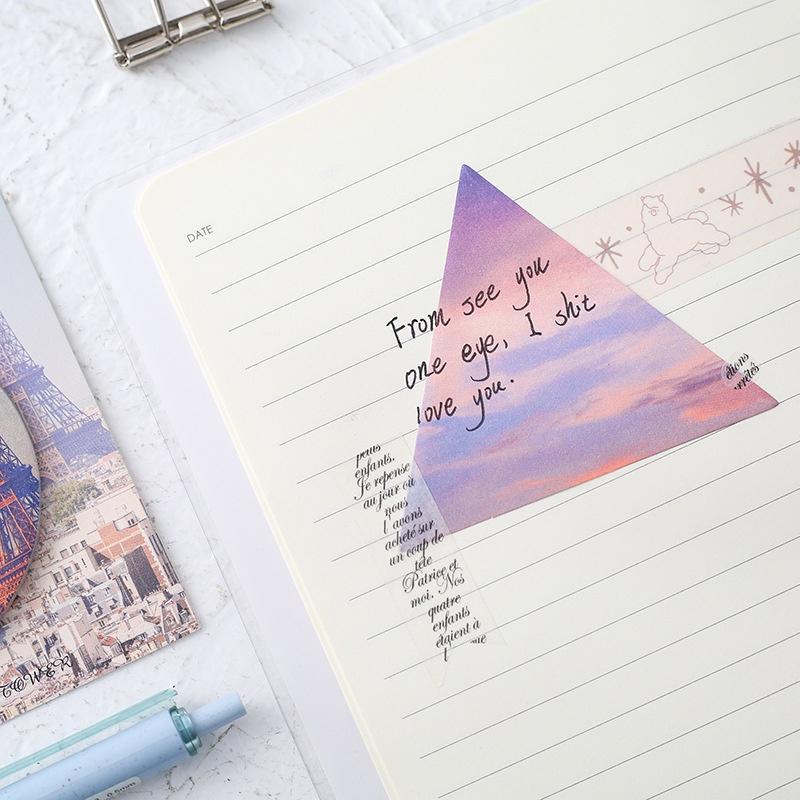 DATE
From see you
one eye, I shit
love you.
étions
enfants.
Je repense
au jour où
nous
l'avons
acheté sur
un coup de
tête
Patrice et
moi. Nos
quatre
enfants
étaient à
TOWER
0.5mm